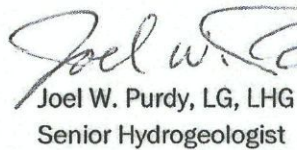 Joel W.
Joel W. Purdy, LG, LHG
Senior Hydrogeologist